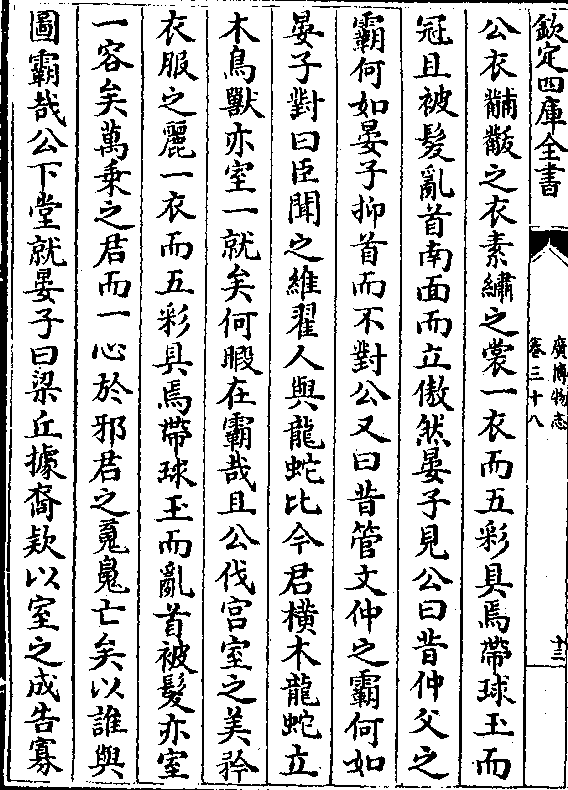 欽定四庫全書
廣博物志
卷三十八
十三
公衣黼黻之衣素繡之裳一衣而五彩具焉帶球玉而
冠且被髮亂首南面而立傲然晏子見公曰昔仲父之
霸何如晏子抑首而不對公又曰昔管文仲之霸何如
晏子對曰臣聞之維翟人與龍蛇比今君橫木龍蛇立
木鳥獸亦室一就矣何暇在霸哉且公伐宮室之美矜
衣服之麗一衣而五彩具焉帶球玉而亂首被髮亦室
一容矣萬乘之君而一心於邪君之䰟䰟亡矣以誰與
圖霸哉公下堂就晏子曰梁丘據裔欵以室之成告寡